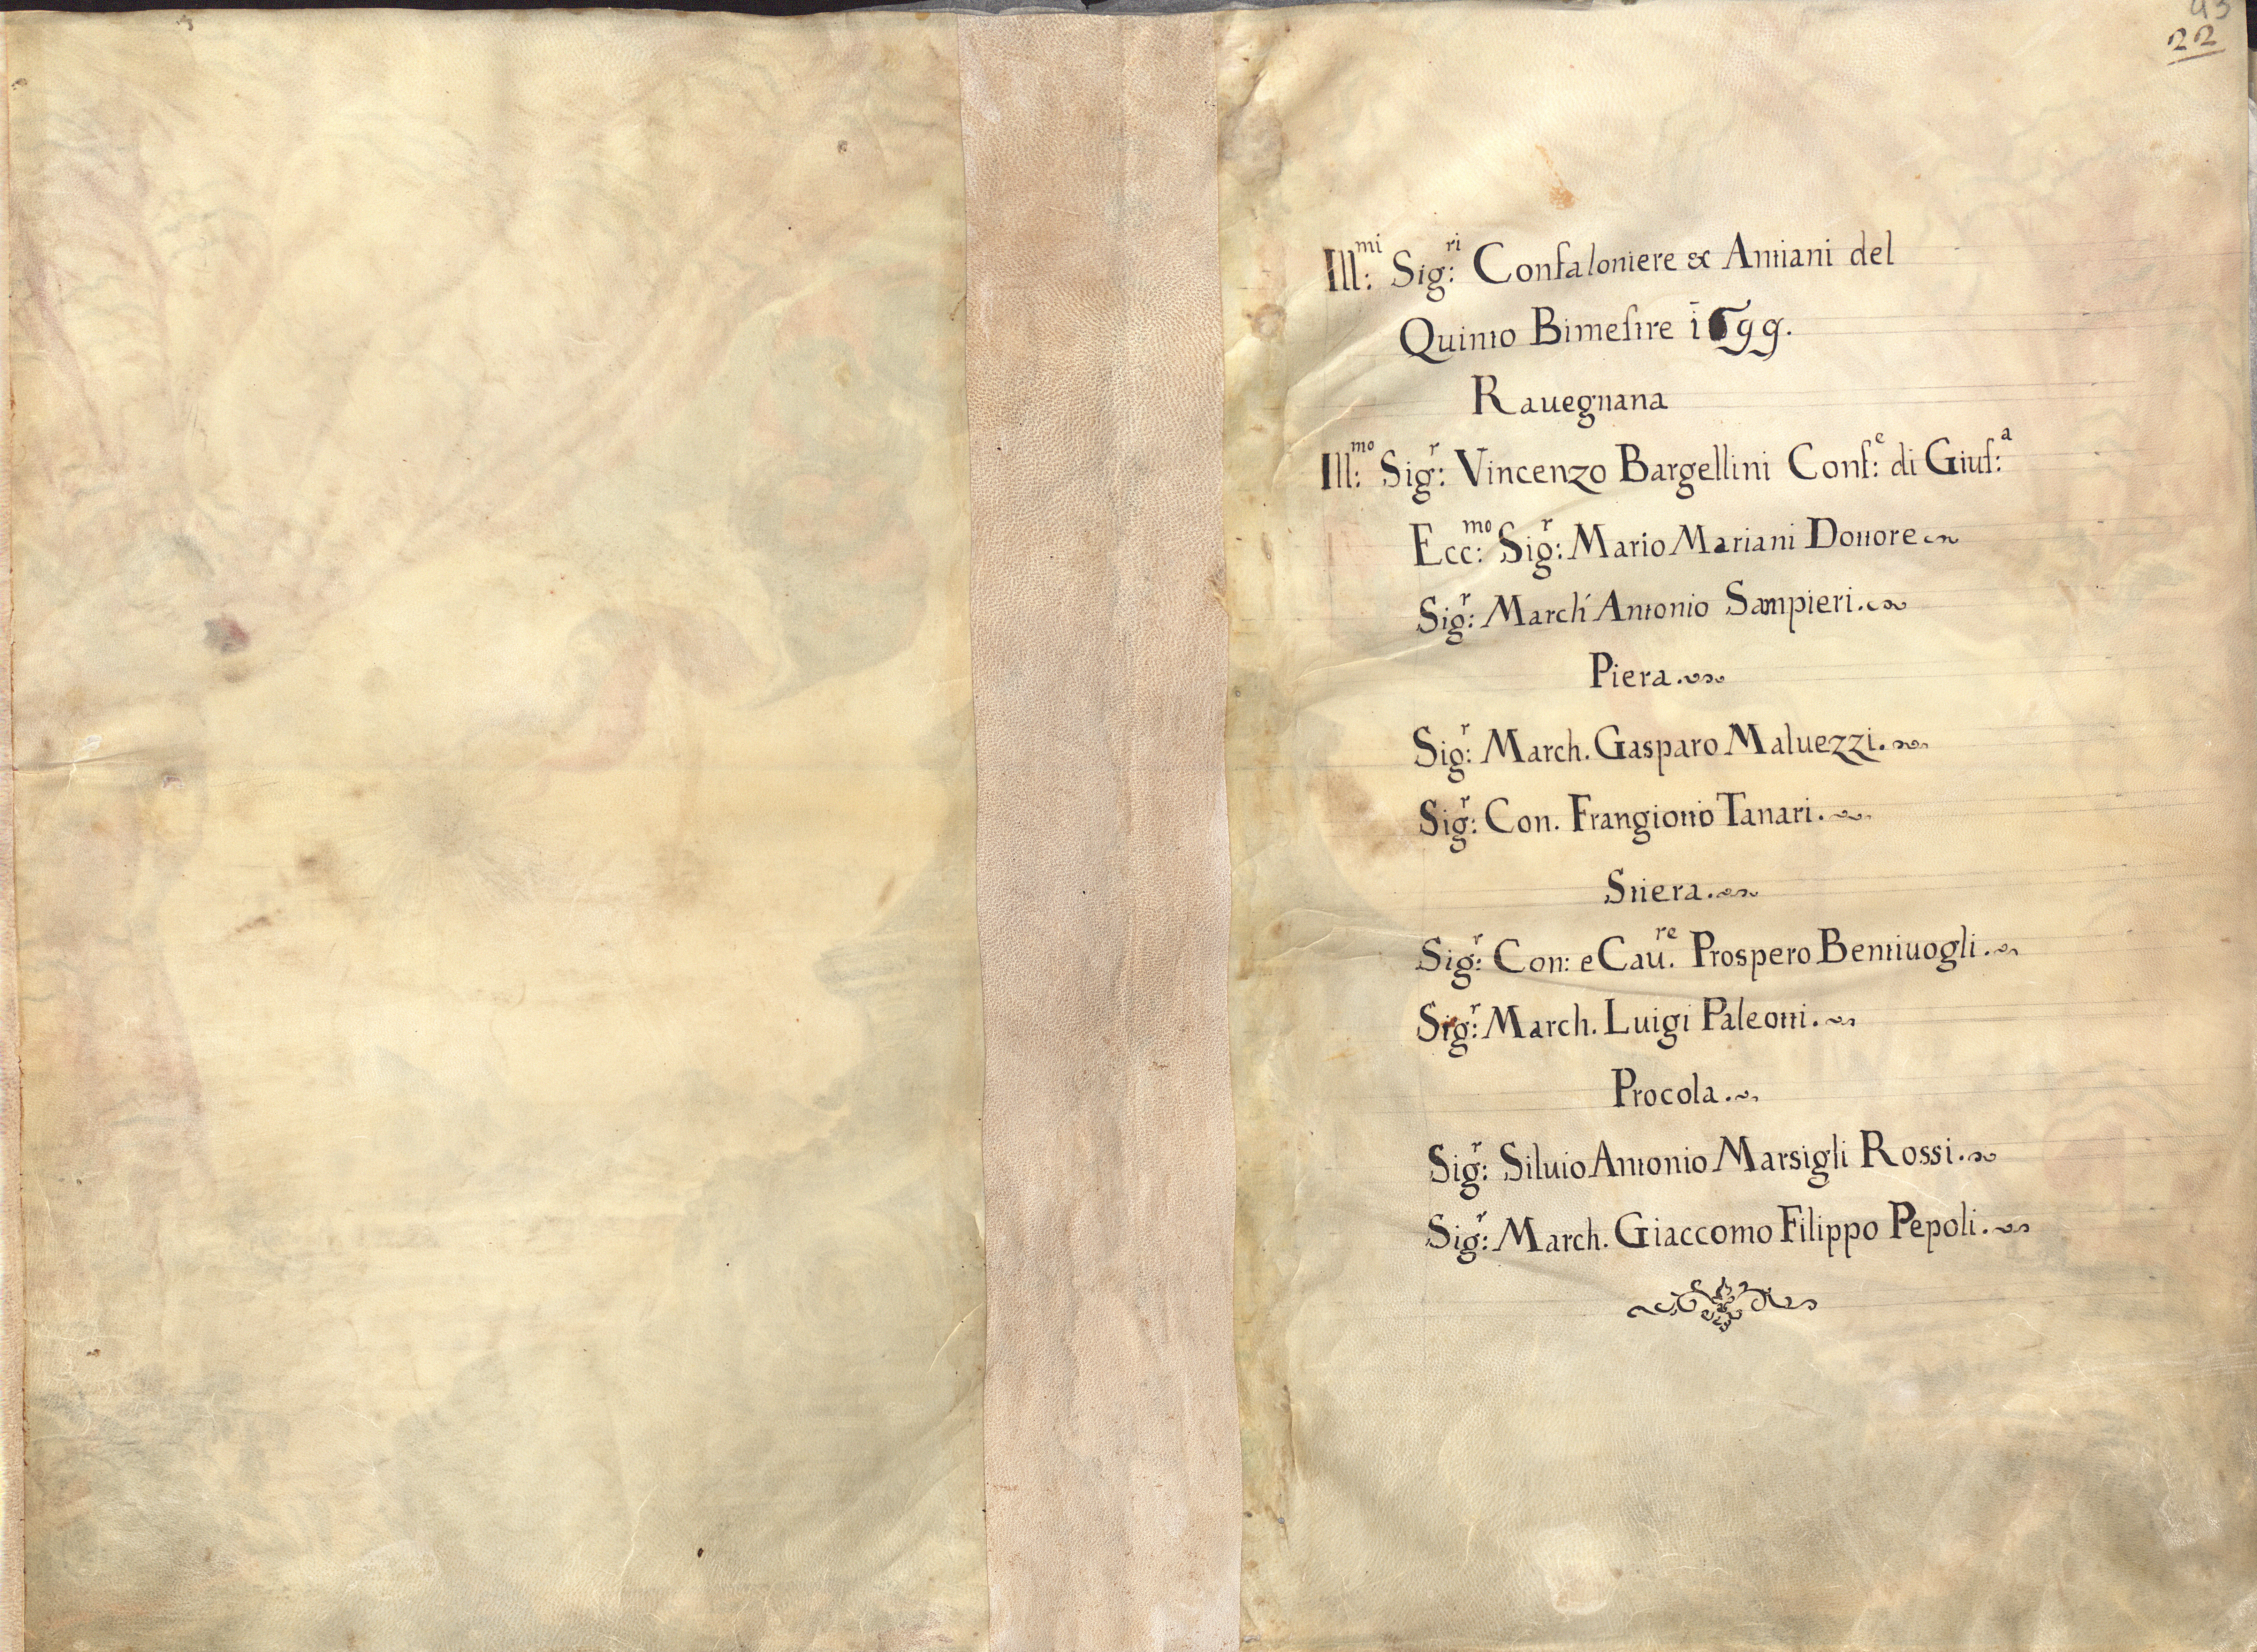 22
Ill:mi Sig:ri Confaloniere & Antiani del
Quinto Bimestre 1699.
Rauegnana
Ill:mo Sig:r Vincenzo Bargellini Conf:e di Gius:a
Ecc:mo Sig:r Mario Mariani Dottore
Sig:r March' Antonio Sampieri.
Piera.
Sig:r March. Gasparo Maluezzi.
Sig:r Con. Frangiotto Tanari.
Stiera.
Sig:r Con: e Cau.re Prospero Bentiuogli.
Sig:r March. Luigi Paleotti.
Procola.
Sig:r Siluio Antonio Marsigli Rossi.
Sig:r March. Giaccomo Filippo Pepoli.